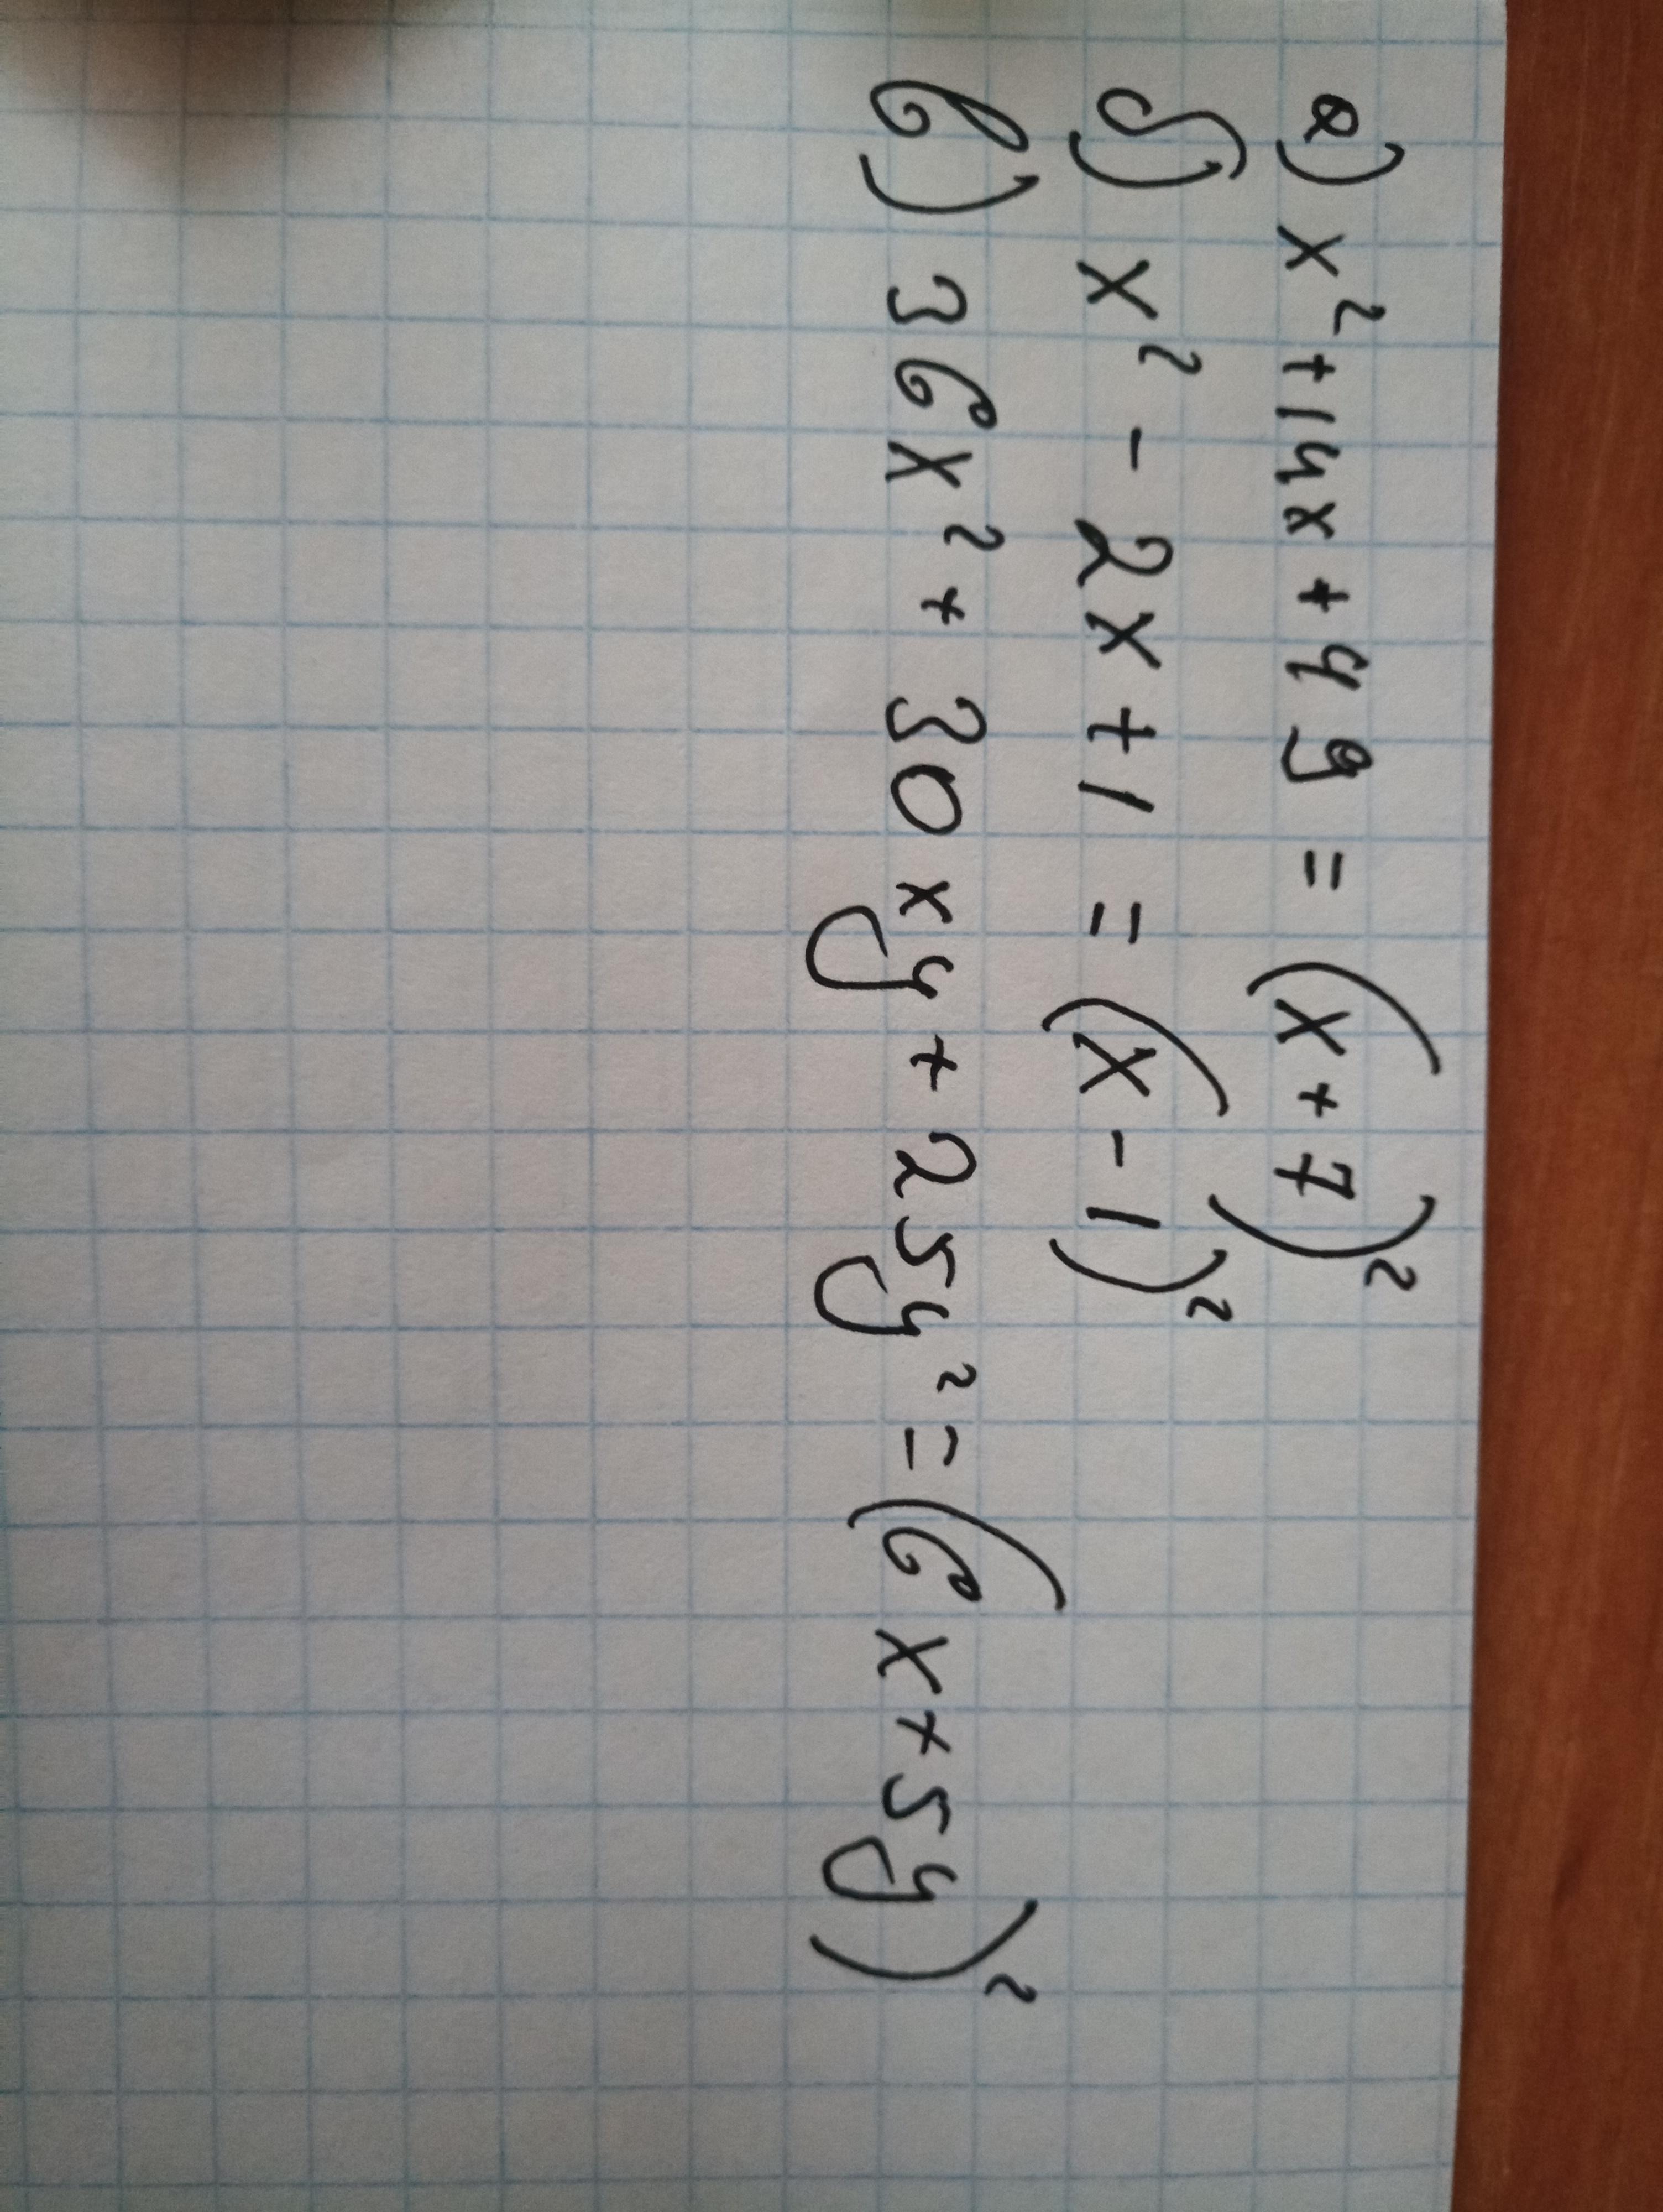 а) x²+14x+49=(x+7)²
б) x²-2x+1=(x-1)²
в) 36x²+30xy+25y²=(6x+5y)²